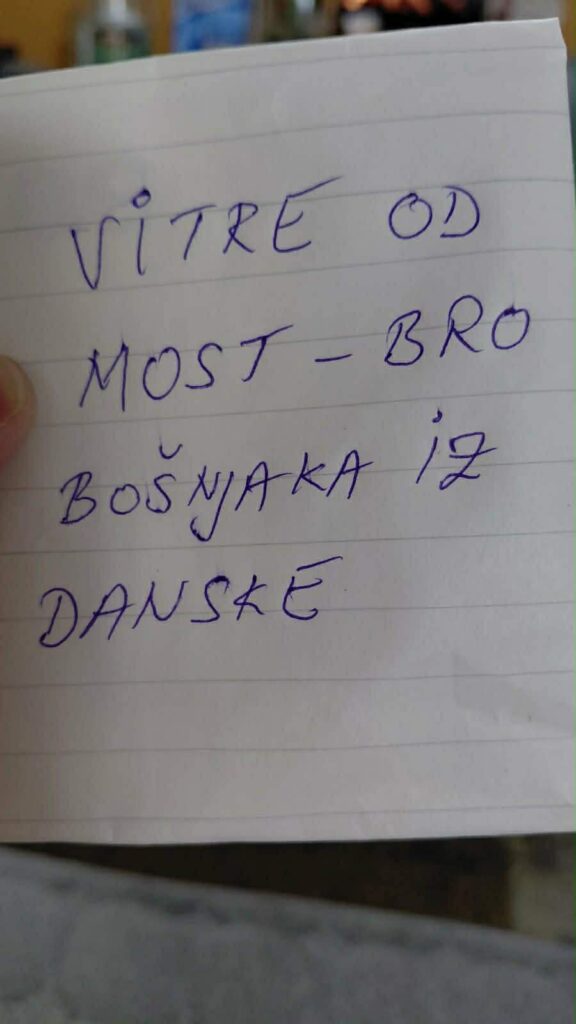 VITRE OD
MOST - BRO
BOŠNJAKA IZ
DANSKE